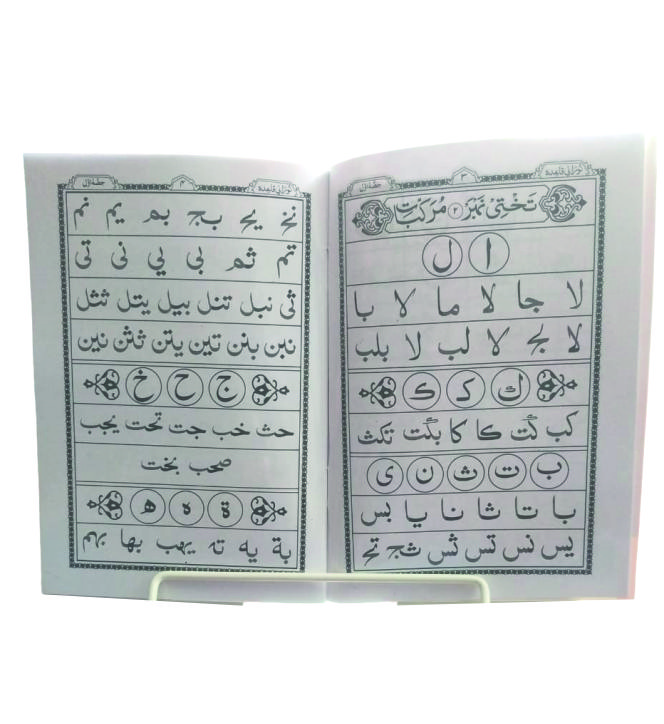 نورانی قاعدہ ۳ حصہ اول
تختی نمبر ۲ مرکبات
ا ل
لا جا لا ما لا با
لا لج لا لب لا بلب
ك ک ڪ
کب کت کا کا بکت تکث
ب ت ث ن ی
با تا ثا نا یا بس
یس نس تس ثس ثج تح
نورانی قاعدہ ۴ حصہ اول
نخ یح بج بم یم نم
تم ثم بی یی نی تی
ثی نبل تنل بیل یتل ثثل
نبن بنن تین یتن ثثن نین
ج ح خ
حث خب جت تحت یجب
صحب بخت
ة ه ھ
بة یه بہ بھا